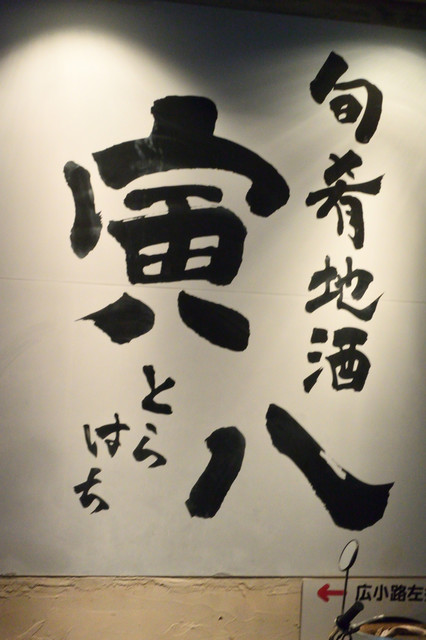 旬肴地酒
寅八
とら
はち
広小路左